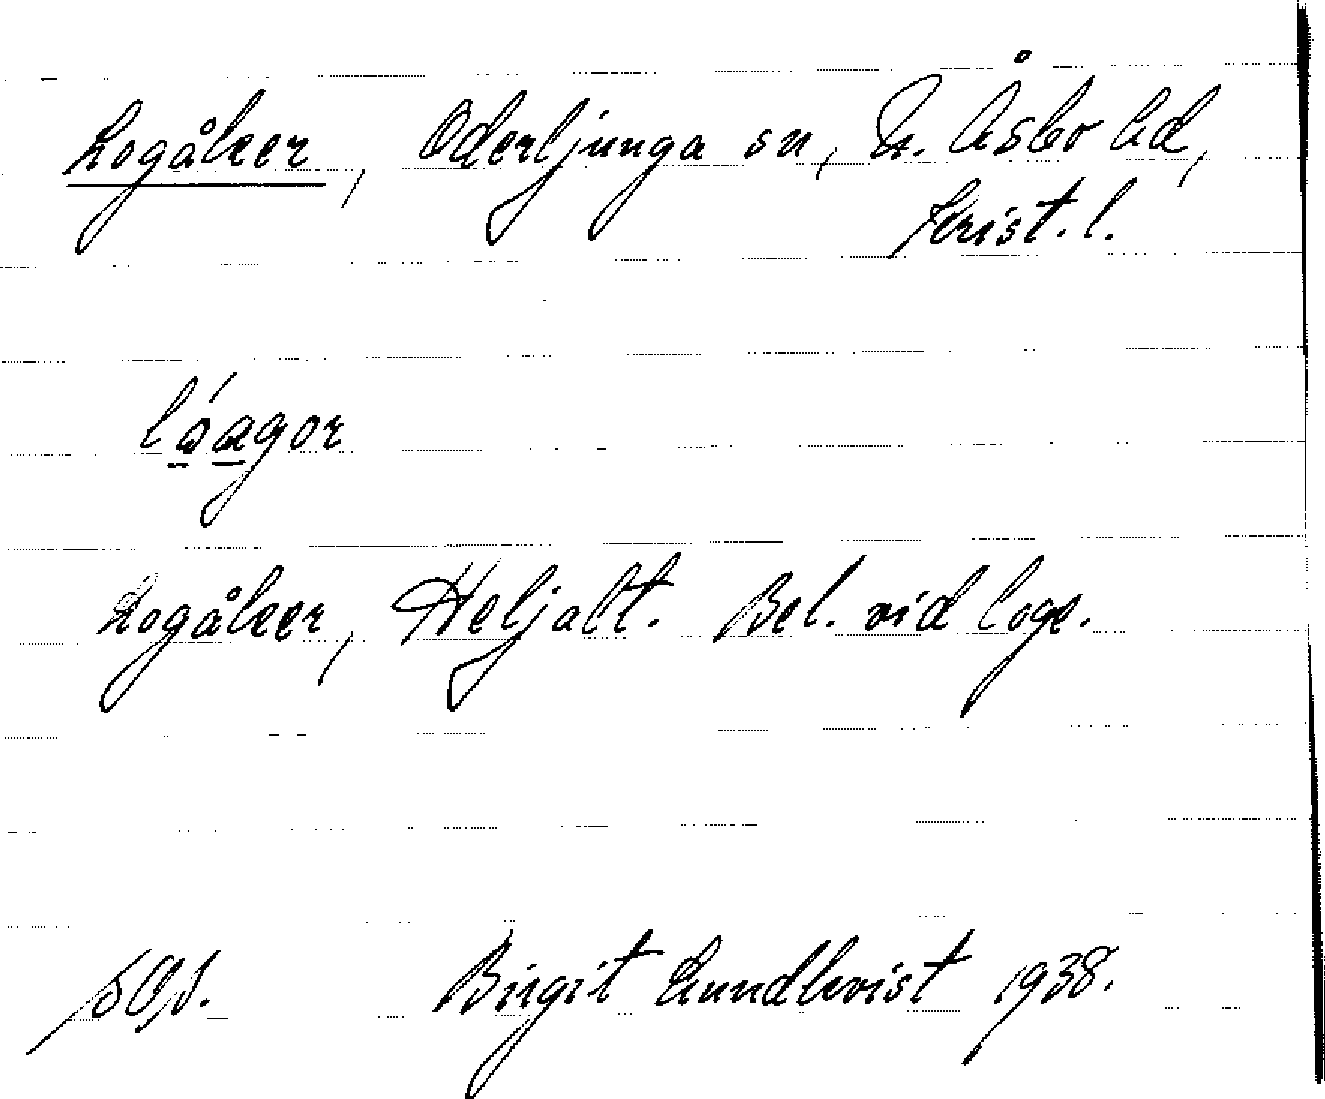 Logåker, Oderljunga sn, N. Åsbo hd,
Krist. l.
lóagor
Logåker, Heljalt. Bel. vid loge.
SOS. Birgit Lundkvist 1938.